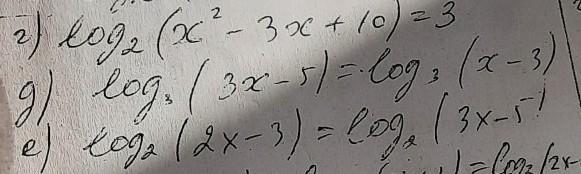 г) log₂ (x² - 3x + 10) = 3
д) log₃ (3x - 5) = log₃ (x - 3)
е) log₂ (2x - 3) = log₂ (3x - 5)
= log₂ (2x -